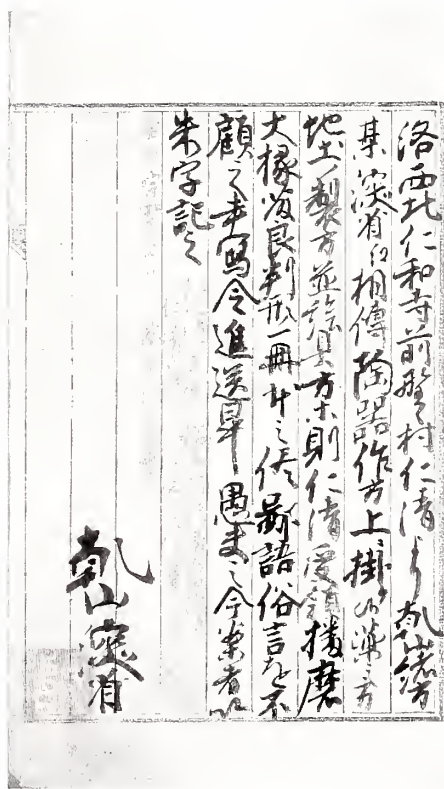 洛西北仁和寺前野々村仁清ゟ乾山緒方
某深省江相傳陶器作方上ヘ掛ル薬方
地土ノ製方並諸具方則仁清受領播磨
大掾藤良判形一冊廿之俗語俗言を不
顧之書寫令進送畢愚走之今案者以
朱字記之
乾山深省